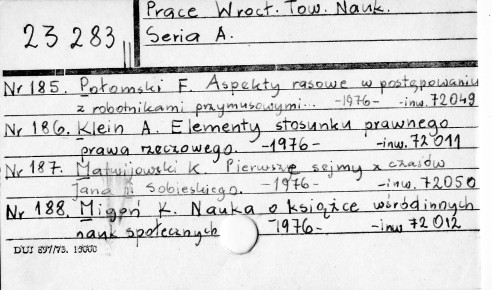 Prace Wrocł. Tow. Nauk.
23 283 ||
Seria A.
Nr 185. Połomski F. Aspekty rasowe w postępowaniu
z robotnikami przymusowymi... -1976- -inw. 72049
Nr 186. Klein A. Elementy stosunku prawnego
prawa rzeczowego. -1976- -inw. 72011
Nr 187. Matwijowski K. Pierwsze sejmy z czasów
Jana III Sobieskiego. -1976- -inw. 72050
Nr 188. Migoń K. Nauka o książce wśród innych
nauk społecznych -1976- -inw 72012
DUJ 897/73. 15000